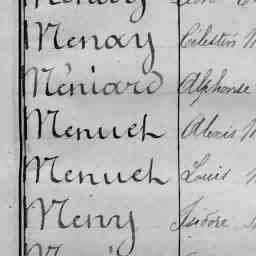 Menay Célestin
Méniard Alphonse
Menuet Alexis
Menuet Louis
Meny Isidore